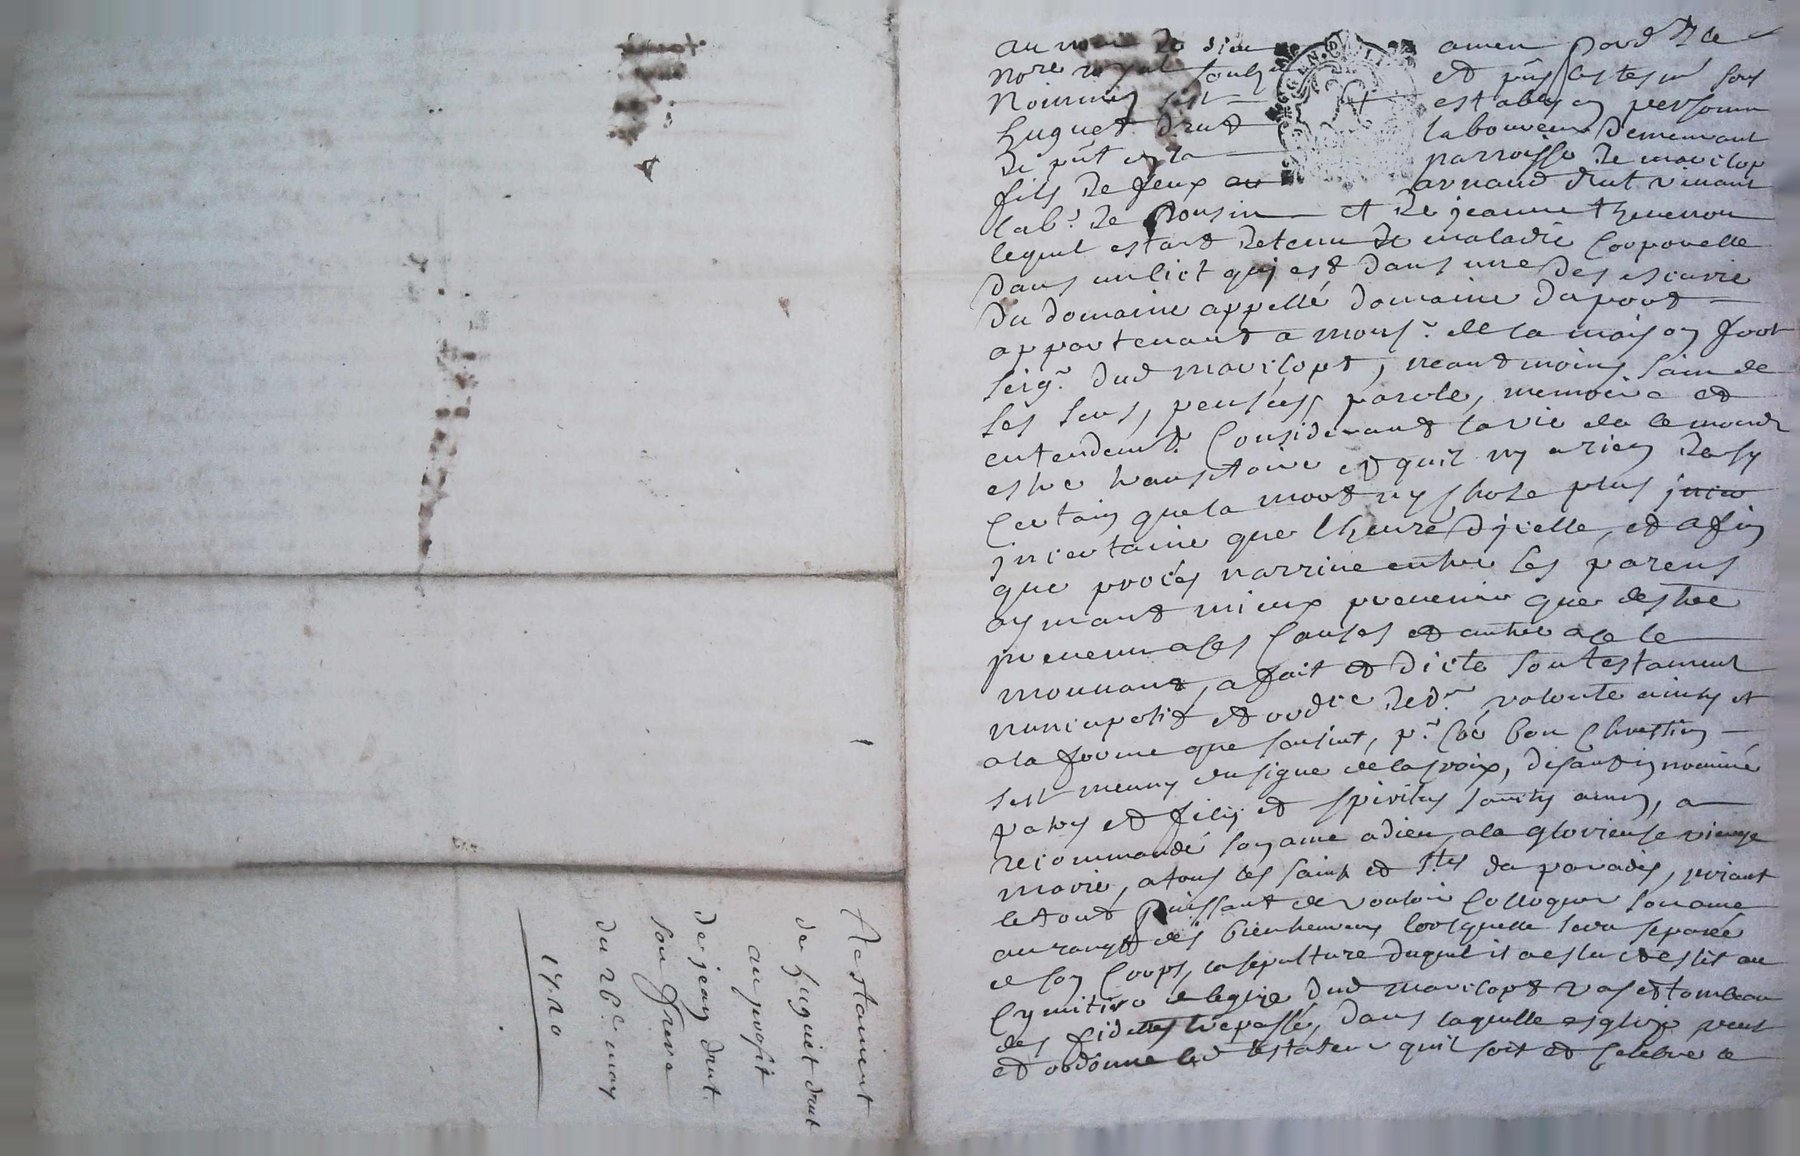 au nom de dieu amen pard. le
no.re royal soubz.é et p̃ns les tesm̃ sous
nommés est estably en personne
huguet drut laboureur demeurant
de p̃nt en la parroisse de maricop
fils de feux arnaud drut vivant
lab.r de Rousin et de jeanne thevenon
lequel estant detenu de maladie corporelle
dans un lict quj est dans une des escurie
du domaine appellé domaine du pont
appartenant a mons.r de la maison fort
seig.r dud maricopt, neantmoins sain de
ses sens, pensées, parole, memoire et
entendem.t Considerant la vie de ce monde
estre transitoire et quil ny a rien de sy
Certain que la mort ny chose plus
jncertaine que lheure djcelle, et afin
que procés narrive entre ses parens
aymant mieux prevenir que destre
prevenu a ses causes et autre a ce le
mouvant, a fait et dicté son testament
nuncupatif et ordre de d.re volonté ainsy et
a la forme que sensuit, p.r Coe bon Chrestien
sest muny du signe de la croix, disant in nominé
patris et filij et spiritus sancty amen, a
recommandé son ame a dieu, a la glorieuse vierge
marie, a tous les saint et s.tes du paradis, priant
le tout puissant de vouloir Colloquer son ame
au rang des bienheureux lorsquelle sera separée
de son Corps, la sepulture duquel il a eslu et eslit au
Cymitiere de leglize dud maricopt vas et tombeau
des fidelles trepassé, dans laquelle esglize veut
et ordonne led testateur quil soit et celebre le
Testament
de huguet drut
au profit
de jean drut
son frere
du 26.e may
1720